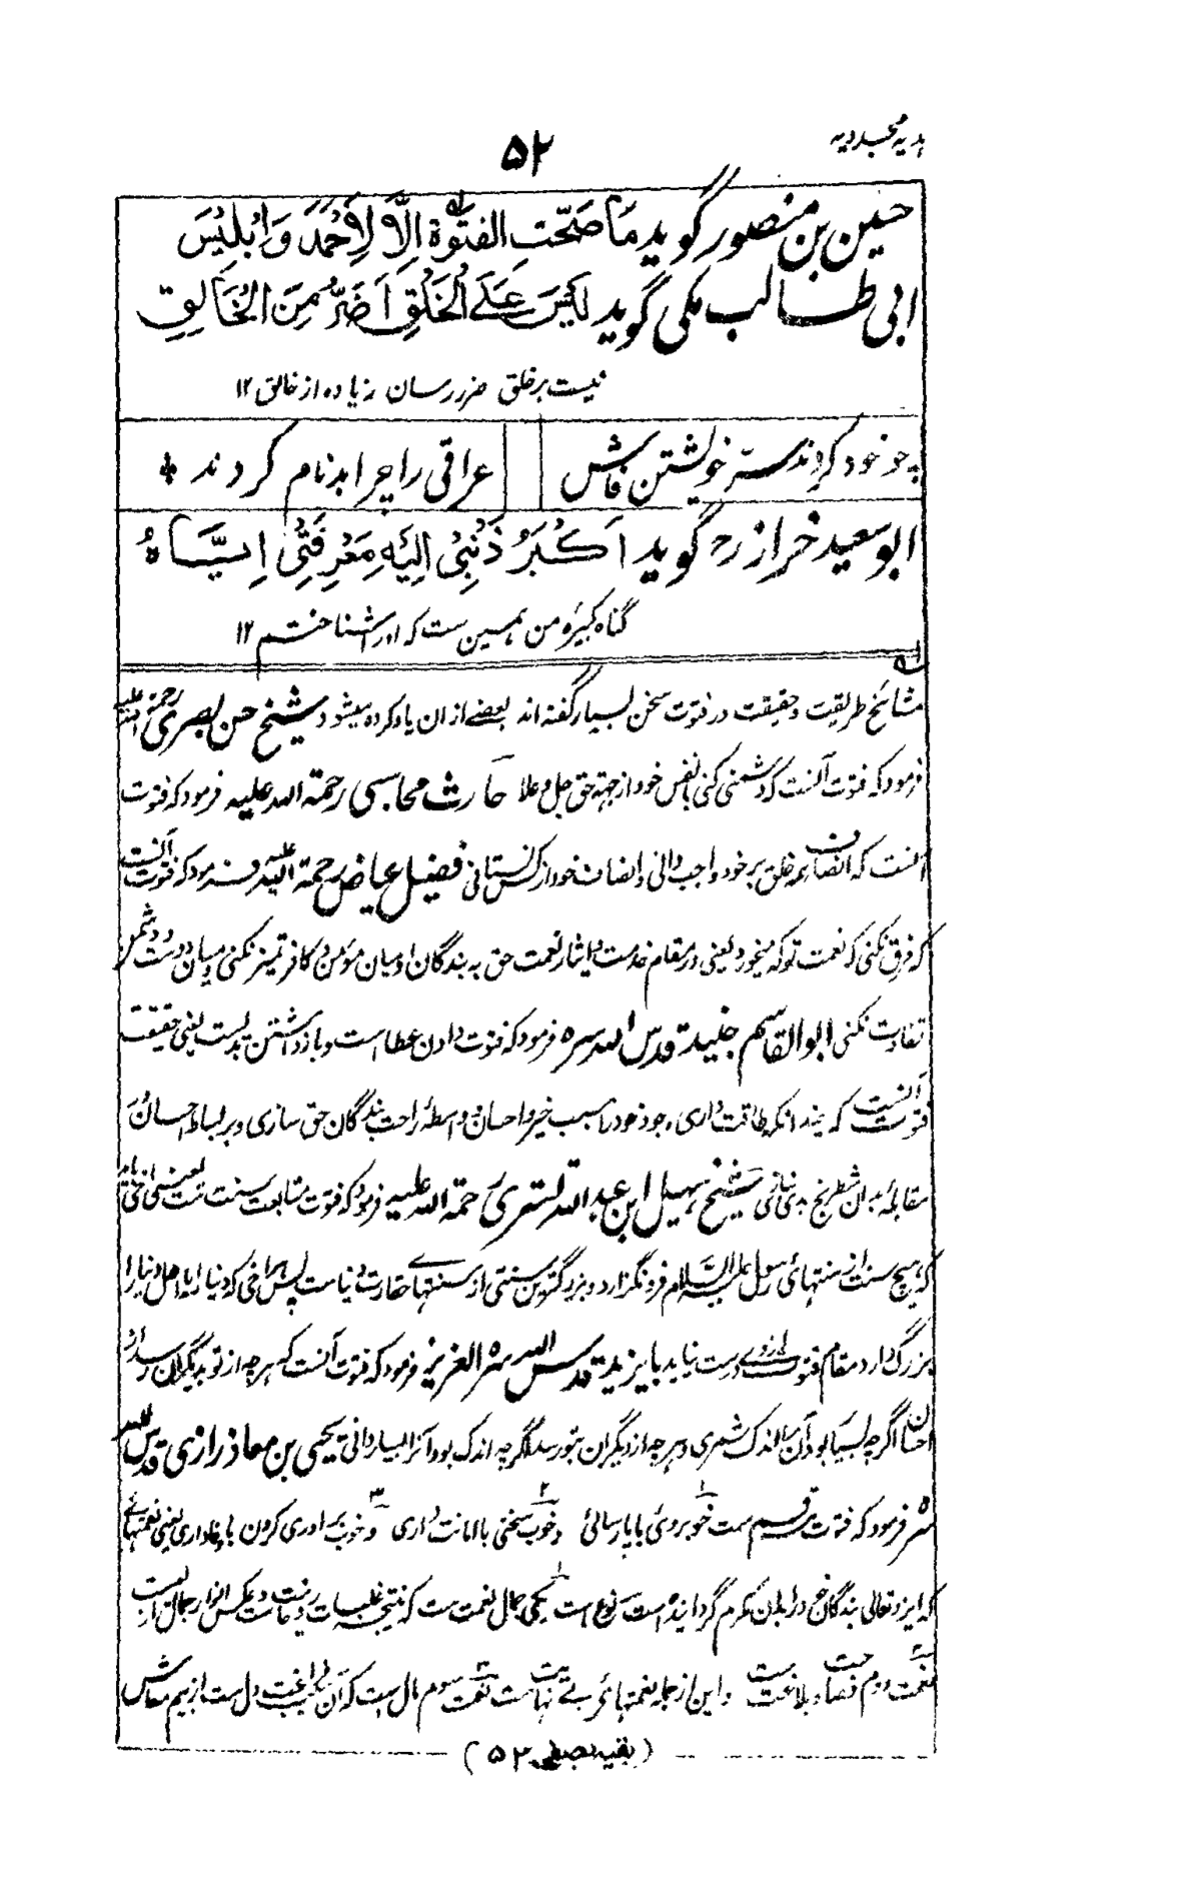 ہدیہ مجددیہ
۵۲
حسین بن منصور گوید مَا صَحَّتِ الفتُوَّة اِلَّا لِاَحْمَدَ وَاِبْلِیْسَ
ابی طالب مکی گوید لَیْسَ عَلَے الْخَلْقِ اَضَرُّ مِنَ الْخَالِقِ
نیست بر خلق ضرر رسان زیادہ از خالق ۱۲
چو خود کردند سرّ خویشتن فاش
عراقی را چرا بدنام کردند
ابو سعید خراز رح گوید اَکْبَرُ ذَنْبِیْ اِلَیْهِ مَعْرِفَتِیْ اِیَّاهُ
گناہ کبیرہ من ہمین ست کہ اورا شناختم ۱۲
مشائخ طریقت وحقیقت در فتوت سخن بسیار گفتہ اند بعضے ازان یاد کردہ میشود شیخ حسن بصری رحمۃ اللہ علیہ
فرمود کہ فتوت آنست کہ دشمنی کنی با نفس خود از جہۃ حق جل وعلا حارث محاسبی رحمۃ اللہ علیہ فرمود کہ فتوت
آنست کہ انصاف ہمہ خلق بر خود واجب دانی وانصاف خود از کس نستانی فضیل عیاض رحمۃ اللہ علیہ فرمود کہ فتوت آنست
کہ فرق نکنی کہ نعمت تو کہ میخورد یعنی در مقام خدمت وایثار نعمت حق بہ بندگان او میان مؤمن وکافر تمیز نکنی ومیان دوست ودشمن
تفاوت نکنی ابو القاسم جنید قدس اللہ سرہ فرمود کہ فتوت دادن عطا است وبازداشتن ید است یعنی حقیقت
فتوت آنست کہ چندانکہ طاقت داری وجود خود را سبب خیر واحسان وواسطۂ راحت بندگان حق سازی وبر بساط احسان
مقابلۂ بدان شطرنج بدی نبازی شیخ سہیل ابن عبد اللہ تستری رحمۃ اللہ علیہ فرمود کہ فتوت متابعت سنت ست یعنی
کہ ہیچ سنت از سنتہائی رسول علیہ السلام فرو نگزارد وبزرگترین سنتی از سنتہاے حقارت دنیاست پس ہر اخی کہ دنیا را یا اہل دنیا را
بزرگ دارد مقام فتوت از وے درست نیاید بایزید قدس اللہ سرہ العزیز فرمود کہ فتوت آنست کہ ہر چہ از تو بدیگران رسد از
احسان اگر چہ بسیار بود آن را اندک شمری وہر چہ از دیگران بتو رسد اگر چہ اندک بود آنرا بسیار دانی یحیی بن معاذ رازی قدس اللہ
سرہ فرمود کہ فتوت سہ قسم ست خوبروئی با پارسائی وخوب سخنی با امانت داری وخوب برادری کردن با وفاداری یعنی نعمتہائے
کہ ایزد تعالی بندگان خود را بدان مکرم گردانیدہ است سہ نوع است یکی جمال نعمت ست کہ نتیجہ
نعمت دوم فصاحت وبلاغت ست واین از جملہ نعمتہائی بے نہایت ست نعمت سوم مال است کہ آن سبب فراغت دل ست از بیم معاش
(بقیہ بصفحہ ۵۳)